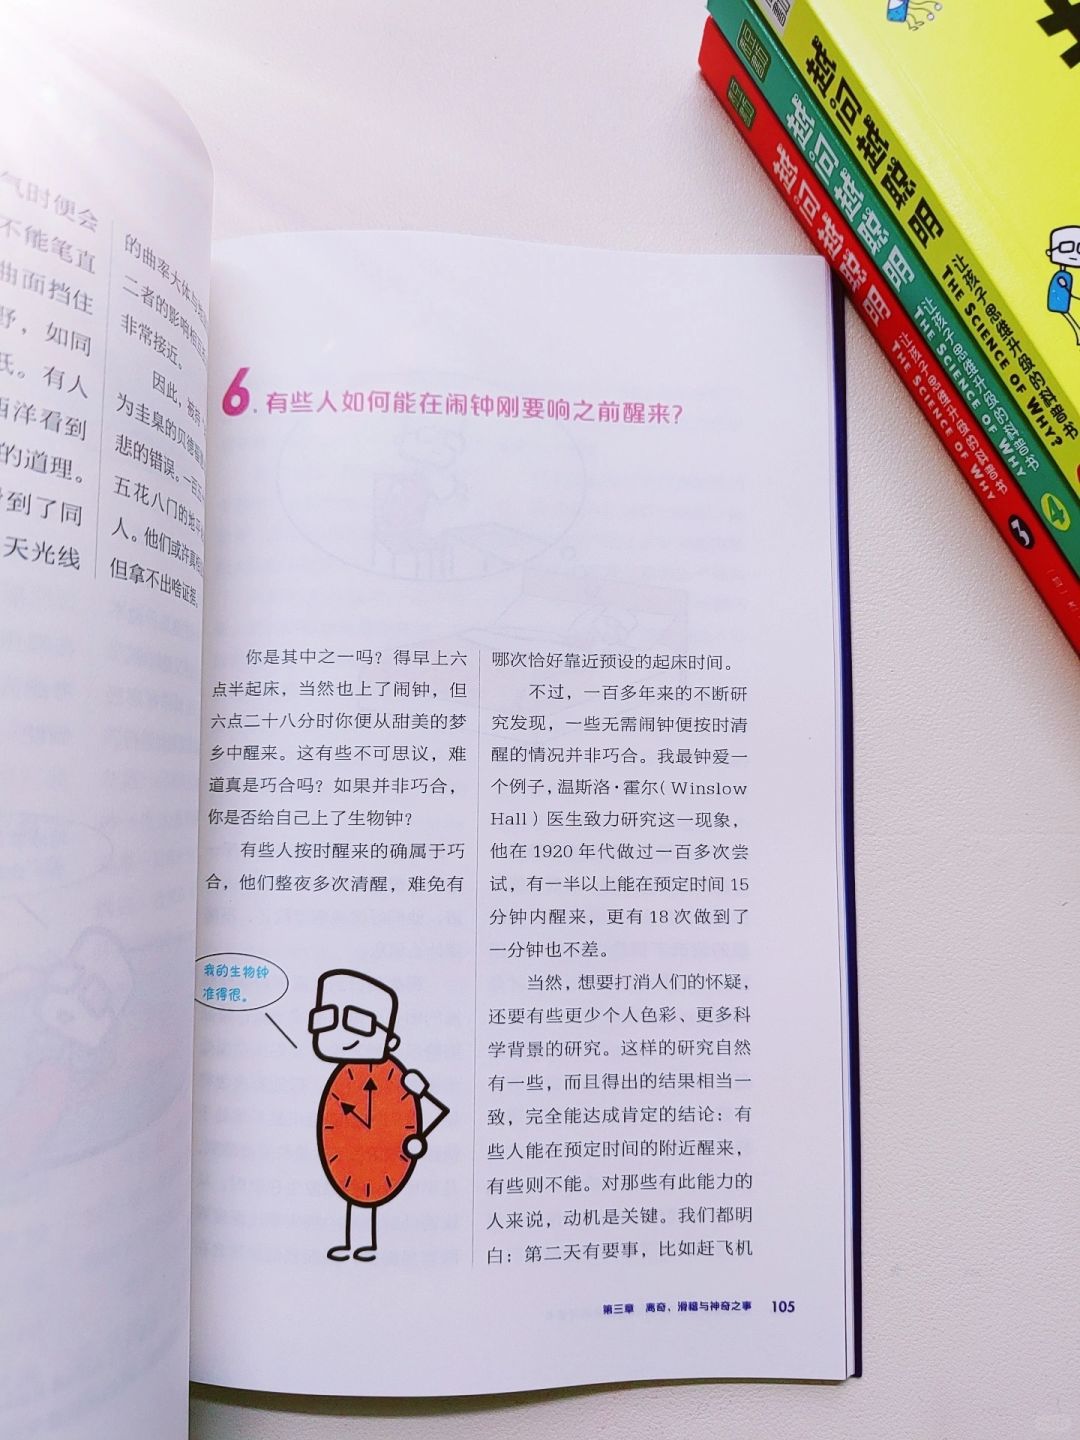 气时便会
不能笔直
曲面挡住
野，如同
氏。有人
西洋看到
的道理。
得到了同
天光线
的曲率大体与
二者的影响相
非常接近。
因此，被
为圭臬的贝德
悲的错误。一百
五花八门的地平
人。他们或许真
但拿不出啥证据。
6.有些人如何能在闹钟刚要响之前醒来？
你是其中之一吗？得早上六
点半起床，当然也上了闹钟，但
六点二十八分时你便从甜美的梦
乡中醒来。这有些不可思议，难
道真是巧合吗？如果并非巧合，
你是否给自己上了生物钟？
有些人按时醒来的确属于巧
合，他们整夜多次清醒，难免有
我的生物钟
准得很。
哪次恰好靠近预设的起床时间。
不过，一百多年来的不断研
究发现，一些无需闹钟便按时清
醒的情况并非巧合。我最钟爱一
个例子，温斯洛·霍尔（Winslow
Hall）医生致力研究这一现象，
他在1920年代做过一百多次尝
试，有一半以上能在预定时间15
分钟内醒来，更有18次做到了
一分钟也不差。
当然，想要打消人们的怀疑，
还要有些更少个人色彩、更多科
学背景的研究。这样的研究自然
有一些，而且得出的结果相当一
致，完全能达成肯定的结论：有
些人能在预定时间的附近醒来，
有些则不能。对那些有此能力的
人来说，动机是关键。我们都明
白：第二天有要事，比如赶飞机
第三章 离奇、滑稽与神奇之事 105
越问越聪明 让孩子思维升级的科普书 THE SCIENCE OF WHY?
越问越聪明 让孩子思维升级的科普书 THE SCIENCE OF WHY 4
越问越聪明 让孩子思维升级的科普书 THE SCIENCE OF WHY 3